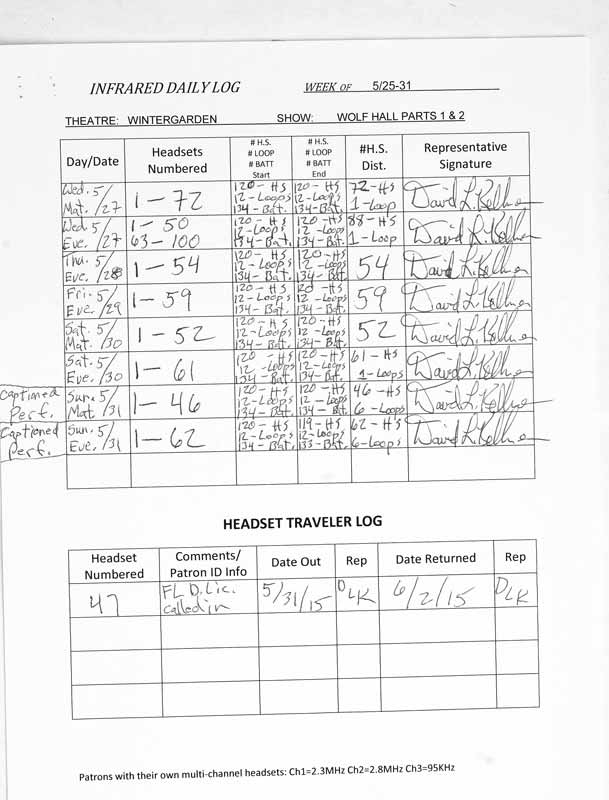 INFRARED DAILY LOG WEEK OF 5/25-31
THEATRE: WINTERGARDEN SHOW: WOLF HALL PARTS 1 & 2
Day/Date Headsets Numbered # H.S. # LOOP # BATT Start # H.S. # LOOP # BATT End #H.S. Dist. Representative Signature
Wed. 5/ Mat. /27 1-72 120-HS 12-Loops 134-Bat. 120-HS 12-Loops 134-Bat. 72-HS 1-Loop David L. Kellner
Wed. 5/ Eve. /27 1-50 63-100 120-HS 12-Loops 134-Bat. 120-HS 12-Loops 134-Bat. 88-HS 1-Loop David L. Kellner
Thu. 5/ Eve. /28 1-54 120-HS 12-Loops 134-Bat. 120-HS 12-Loops 134-Bat. 54 David L. Kellner
Fri. 5/ Eve. /29 1-59 120-HS 12-Loops 134-Bat. 120-HS 12-Loops 134-Bat. 59 David L. Kellner
Sat. 5/ Mat. /30 1-52 120-HS 12-Loops 134-Bat. 120-HS 12-Loops 134-Bat. 52 David L. Kellner
Sat. 5/ Eve. /30 1-61 120-HS 12-Loops 134-Bat. 120-HS 12-Loops 134-Bat. 61-HS 1-Loops David L. Kellner
Captioned Perf. Sun. 5/ Mat. /31 1-46 120-HS 12-Loops 134-Bat. 120-HS 12-Loops 134-Bat. 46-HS 6-Loops David L. Kellner
Captioned Perf. Sun. 5/ Eve. /31 1-62 120-HS 12-Loops 134-Bat. 119-HS 12-Loops 133-Bat. 62-HS 6-Loops David L. Kellner
HEADSET TRAVELER LOG
Headset Numbered Comments/ Patron ID Info Date Out Rep Date Returned Rep
47 FL D. Lic. called in 5/31/15 DLK 6/2/15 DLK
Patrons with their own multi-channel headsets: Ch1=2.3MHz Ch2=2.8MHz Ch3=95KHz